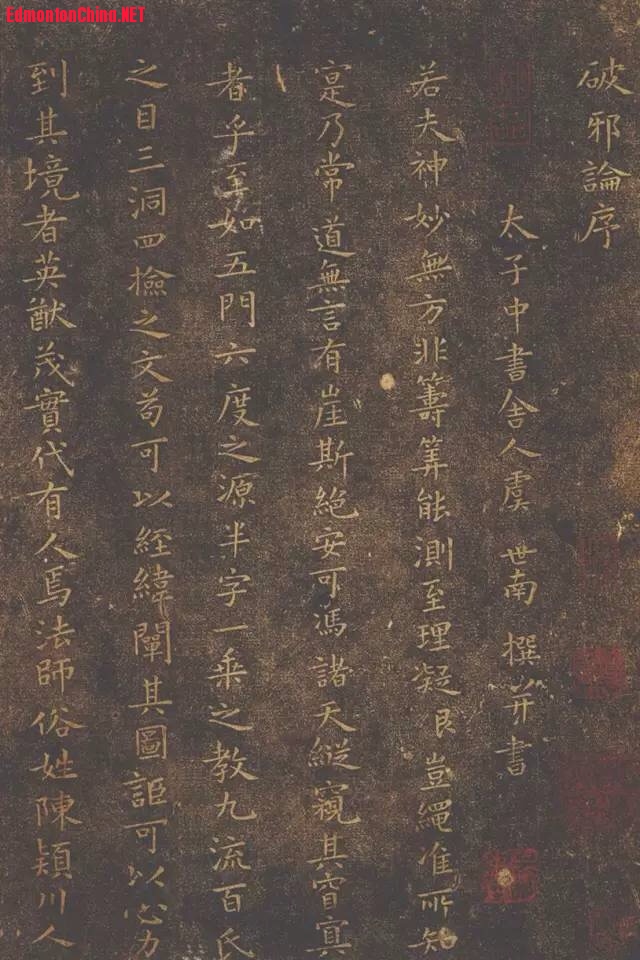 EdmontonChina.NET
破邪論序
太子中書舍人虞世南撰并書
若夫神妙無方非籌筭能測至理凝豈繩准所知
寔乃常道無言有崖斯絕安可馮諸天縱窺其窅冥
者乎至如五門六度之源半字一乘之教九流百氏
之目三洞四撿之文苟可以經緯闡其圖詎可以心力
到其境者英猷茂實代有人焉法師俗姓陳穎川人